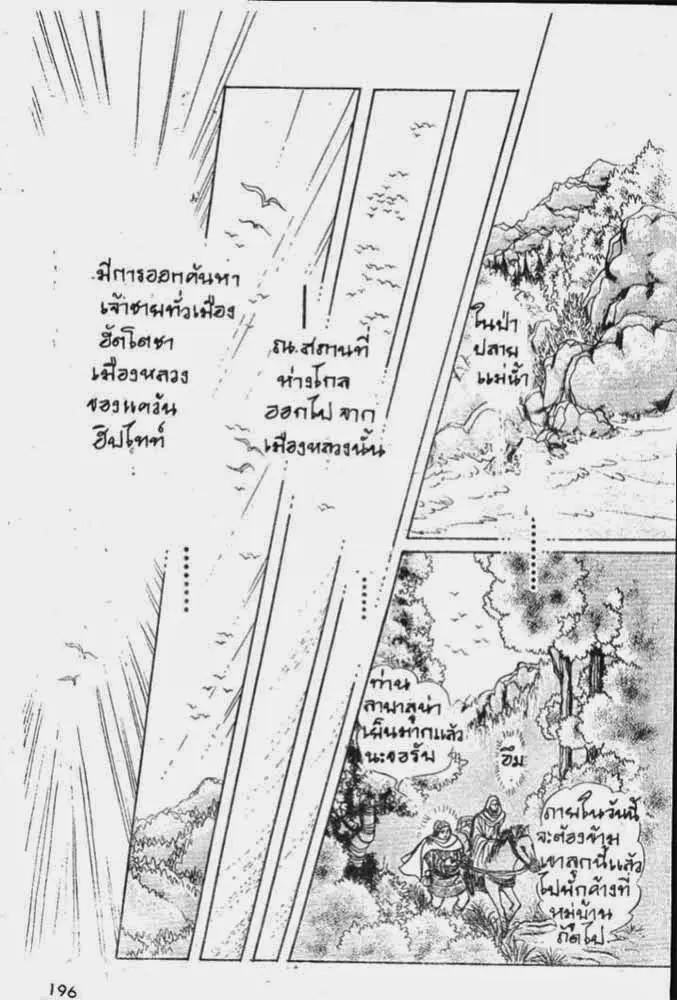 มีการออกค้นหา
เจ้าชายทั่วเมือง
ฮัตโตซา
เมืองหลวง
ของแคว้น
ฮิปไทท์
ณ.สถานที่
ห่างไกล
ออกไป จาก
เมืองหลวงนั้น
ในป่า
ปลาย
แม่น้ำ
ท่าน
ลาบาลูน่า
เย็นมากแล้ว
นะขอรับ
อืม
ภายในวันนี้
จะต้องข้าม
เขาลูกนี้แล้ว
ไปพักค้างที่
หมู่บ้าน
ถัดไป.
196